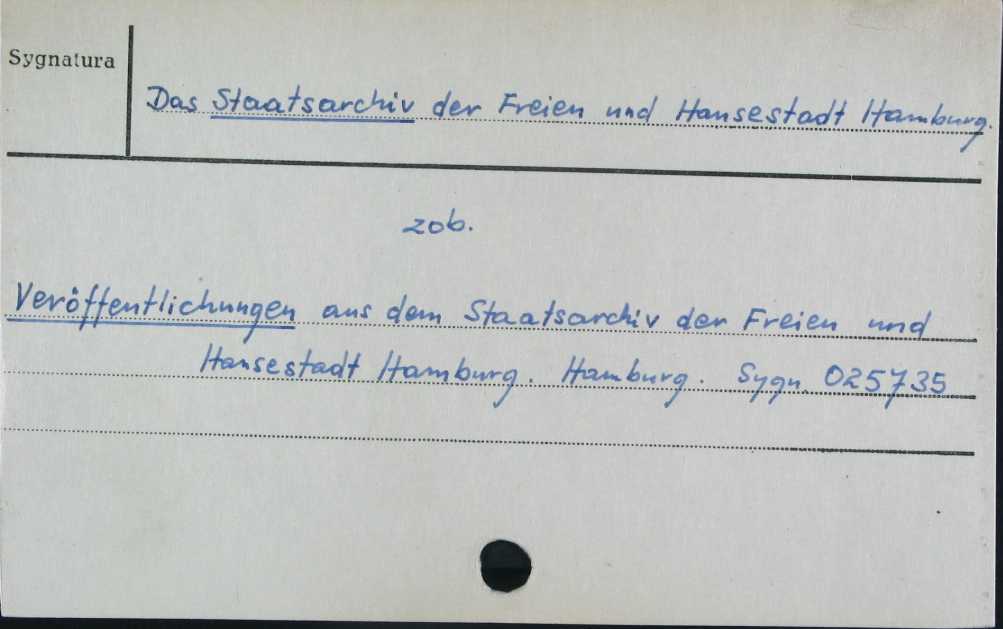 Sygnatura
Das Staatsarchiv der Freien und Hansestadt Hamburg.
zob.
Veröffentlichungen aus dem Staatsarchiv der Freien und
Hansestadt Hamburg. Hamburg. Sygn. 025735